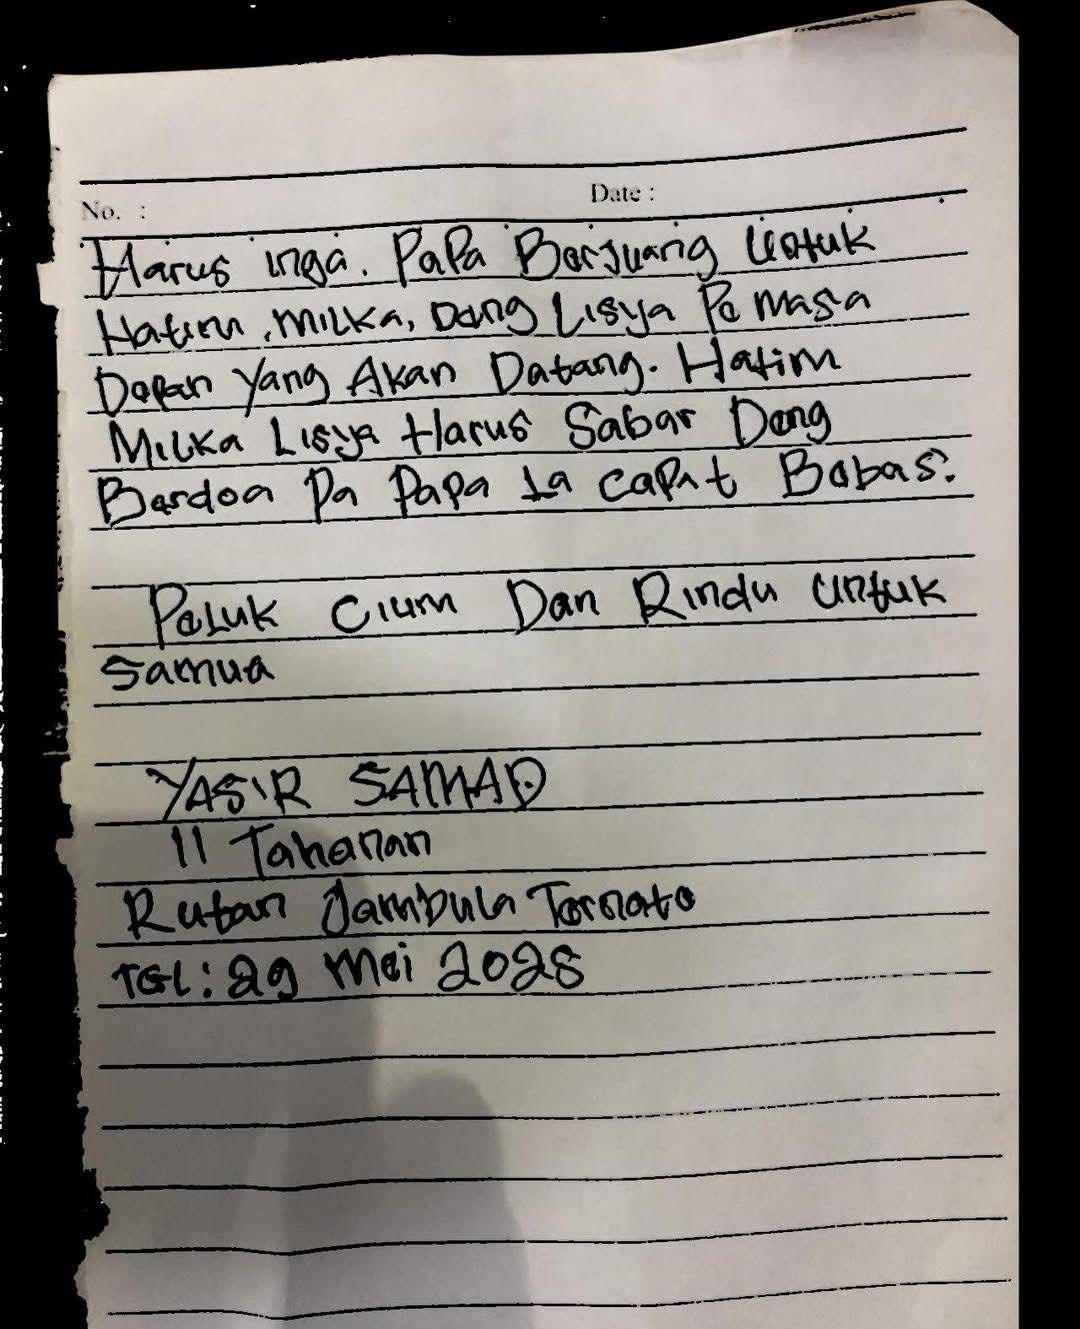 No. :
Date :
Harus inga. Papa Berjuang Untuk
Hatim, Milka, Deng Lisya Pe masa
Depan Yang Akan Datang. Hatim
Milka Lisya Harus Sabar Deng
Berdoa Pa Papa La Capat Bebas.
Peluk Cium Dan Rindu Untuk
Samua
YASIR SAMAD
11 Tahanan
Rutan Jambula Ternate
TGL: 29 Mei 2025